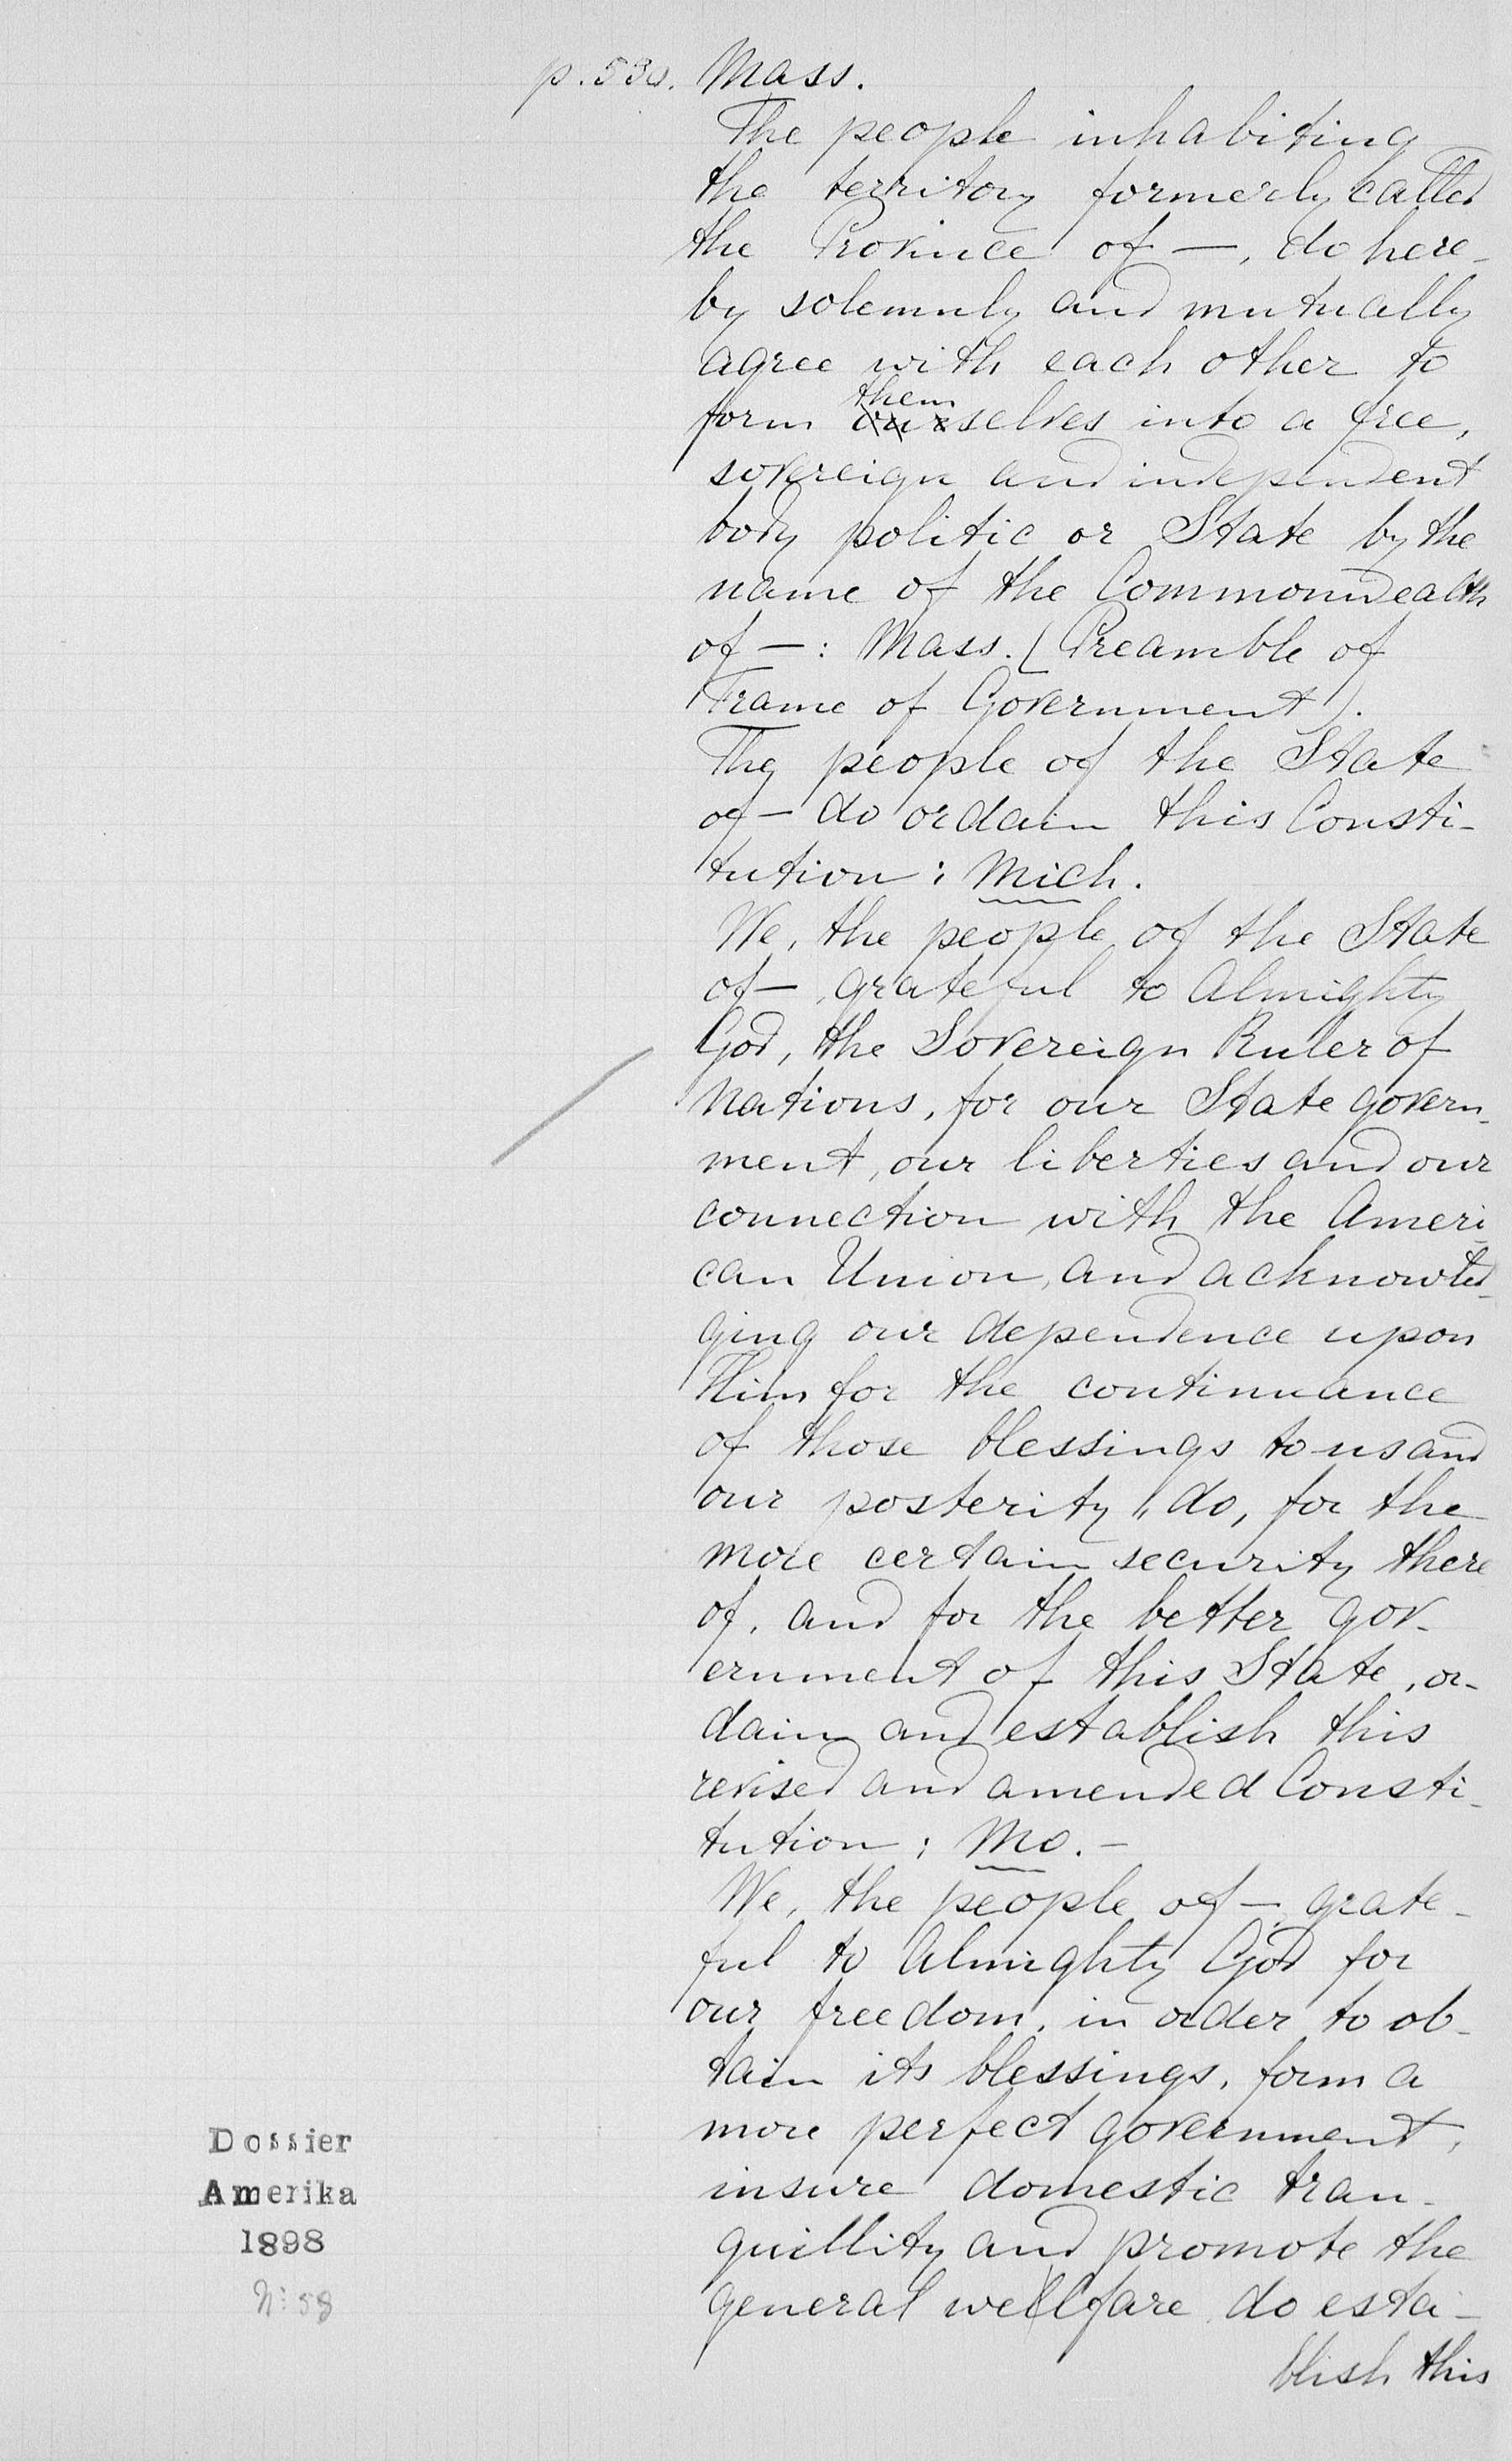 p. 530. Mass.
The people inhabiting
the territory formerly called
the Province of —, do here-
by solemnly and mutually
agree with each other to
them
form ourselves into a free,
sovereign and independent
body politic or State by the
name of the Commonwealth
of —: Mass. (Preamble of
Frame of Government).
The people of the State
of — do ordain this Consti-
tution: Mich.
We, the people of the State
of —, grateful to Almighty
God, the Sovereign Ruler of
Nations, for our State govern-
ment, our liberties and our
connection with the Ameri-
can Union, and acknowled-
ging our dependence upon
Him for the continuance
of those blessings to us and
our posterity, do, for the
more certain security there
of, and for the better gov-
ernment of this State, or-
dain and establish this
revised and amended Consti-
tution: Mo. —
We, the people of —, grate-
ful to Almighty God for
our freedom, in order to ob-
tain its blessings, form a
more perfect government,
insure domestic tran-
quillity and promote the
general wellfare, do esta-
blish this
Dossier
Amerika
1898
N: 58